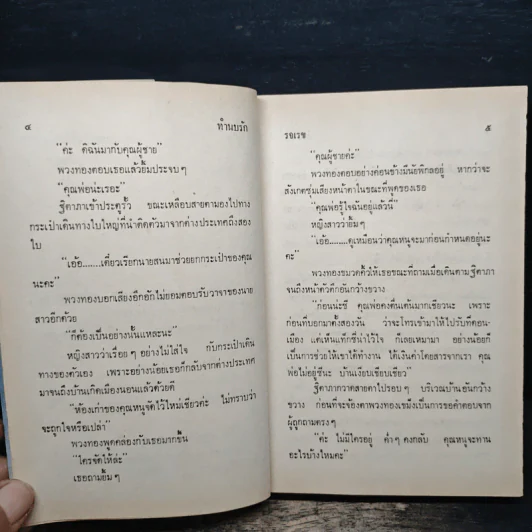 ๔ ทำนบรัก
“ค่ะ ดิฉันมากับคุณผู้ชาย”
พวงทองตอบเธอแล้วยิ้มประจบๆ
“คุณพ่อน่ะเรอะ”
ฐิตาภาเข้าประตูรั้ว ขณะเหลือบสายตามองไปทาง
กระเป๋าเดินทางใบใหญ่ที่นำติดตัวมาจากต่างประเทศถึงสอง
ใบ
“เอ้อ.......เดี๋ยวเรียกนายสนมาช่วยยกกระเป๋าของคุณ
นะคะ”
พวงทองบอกเสียงอีกอักไม่ยอมตอบรับวาจาของนาย
สาวอีกด้วย
“ก็ต้องเป็นอย่างนั้นแหละนะ”
หญิงสาวว่าเรื่อยๆ อย่างไม่ใส่ใจ กับกระเป๋าเดิน
ทางของตัวเอง เพราะอย่างน้อยเธอก็กลับจากต่างประเทศ
มาจนถึงบ้านเกิดเมืองนอนแล้วด้วยดี
“ห้องเก่าของคุณหนูจัดไว้ใหม่เชียวค่ะ ไม่ทราบว่า
จะถูกใจหรือเปล่า”
พวงทองพูดคล่องกับเธอมากขึ้น
“ใครจัดให้ล่ะ”
เธอถามยิ้มๆ
รจเรข ๕
“คุณผู้ชายค่ะ”
พวงทองตอบอย่างค่อนข้างมีนัยพิกลอยู่ หากว่าจะ
สังเกตซุ่มเสียงหน้าตาในขณะที่พูดของเธอ
“คุณพ่อรู้ใจฉันอยู่แล้วนี่”
หญิงสาวว่ายิ้มๆ
“เอ้อ.....ดูเหมือนว่าคุณหนูจะมาก่อนกำหนดอยู่นะ
คะ”
พวงทองขมวดคิ้วให้เธอขณะที่ถามเมื่อเดินตามฐิตาภา
จนถึงหน้าตัวตึกอันกว้างขวาง
“ก่อนน่ะซี คุณพ่อคงตื่นเต้นมากเชียวนะ เพราะ
ก่อนที่บอกมาตั้งสองวัน ว่าจะโทรเข้ามาให้ไปรับที่ดอน-
เมือง แต่เห็นแท็กซี่น่าไว้ใจ ก็เลยเหมามา อย่างน้อยก็
เป็นการช่วยให้เขาได้ทำงาน ได้เงินค่าโดยสารจากเรา คุณ
พ่อไม่อยู่ซีนะ บ้านเงียบเชียบเชียว”
ฐิตาภากวาดสายตาไปรอบๆ บริเวณบ้านอันกว้าง
ขวาง ก่อนที่จะจ้องตาพวงทองเขม็งเป็นการขอคำตอบจาก
ผู้ถูกถามตรงๆ
“ค่ะ ไม่มีใครอยู่ ค่ำๆ คงกลับ คุณหนูจะทาน
อะไรบ้างไหมคะ”